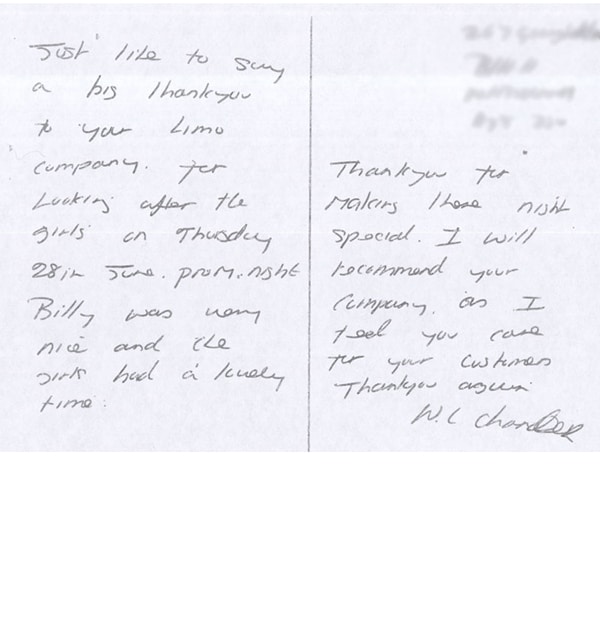 Just like to say
a big thankyou
to your Limo
company. for
Looking after the
girls on Thursday
28th June. prom. night
Billy was very
nice and the
girls had a lovely
time.
Thankyou for
Making there night
special. I will
recommend your
company. as I
feel you care
for your customers
Thankyou again
W. C Chandler